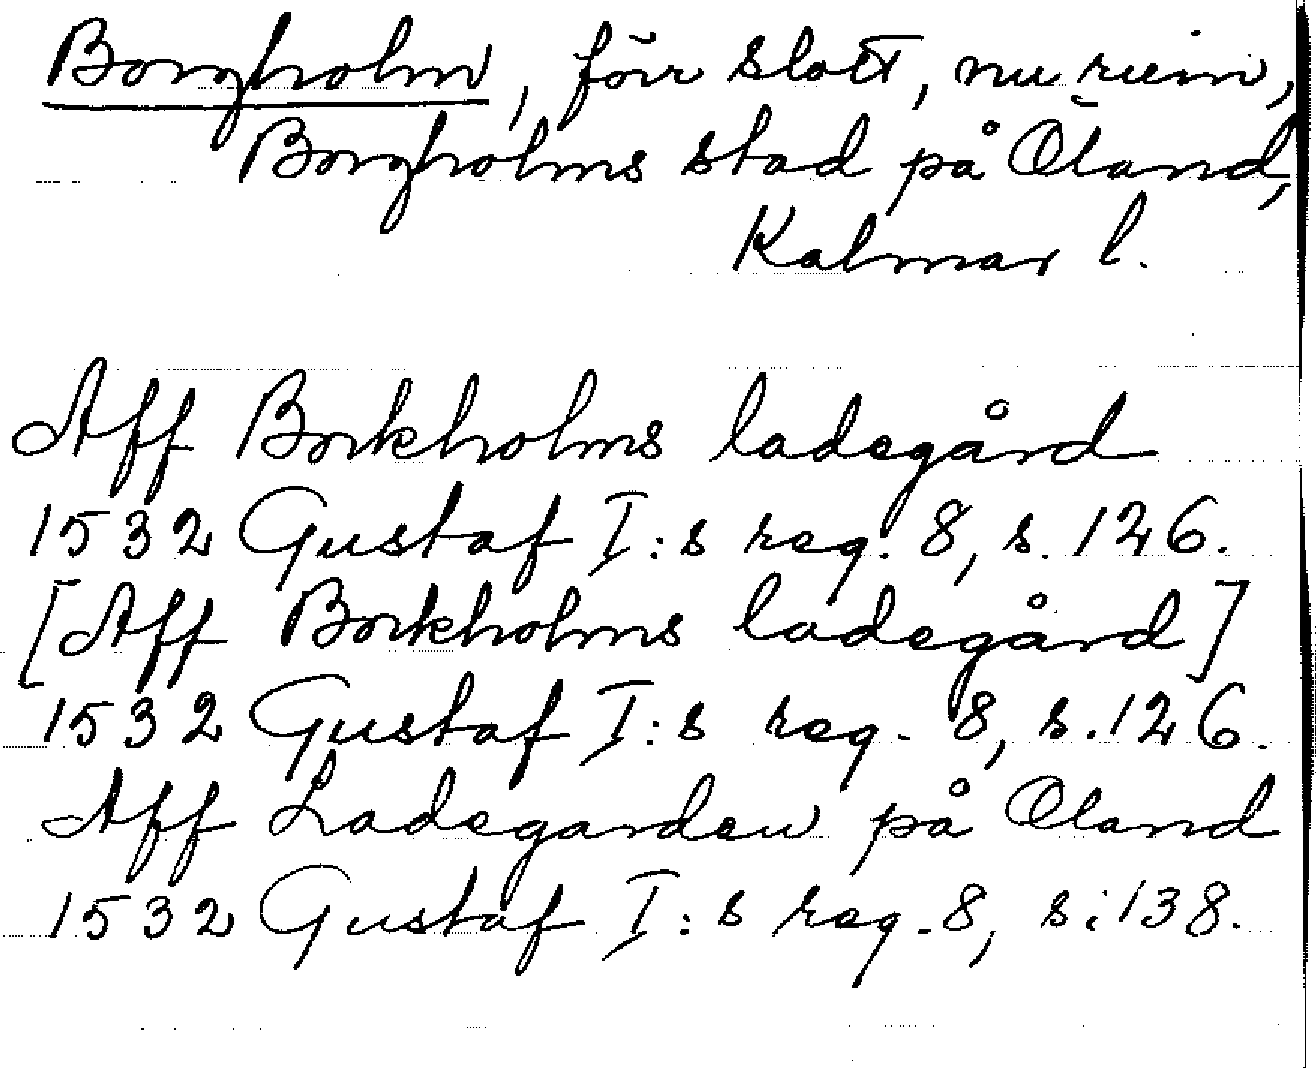 Borgholm, förr slott, nu ruin,
Borgholms stad på Öland,
Kalmar l.
Aff Borkholms ladegård
1532 Gustaf I:s reg. 8, s. 126.
[Aff Borkholms ladegård]
1532 Gustaf I:s reg. 8, s. 126.
Aff Ladegarden på Öland
1532 Gustaf I:s reg. 8, s. 138.